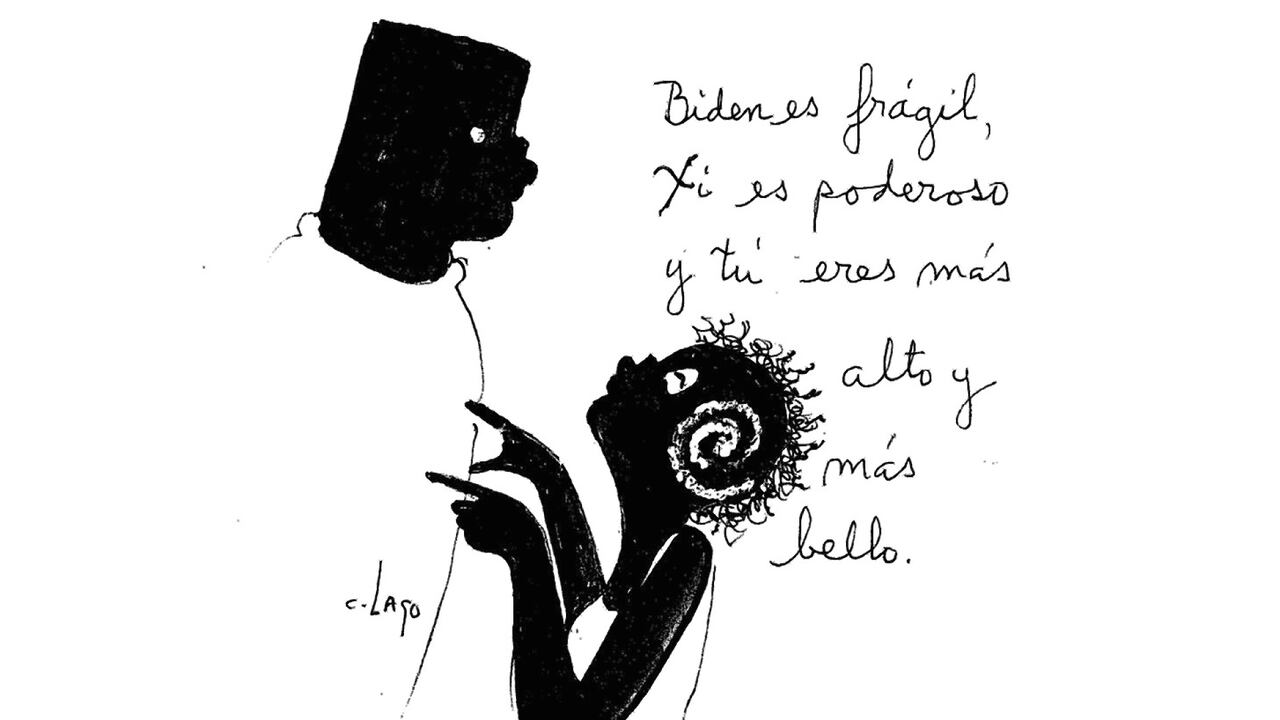 Biden es frágil,
Xi es poderoso
y tú eres más
alto y
más
bello.
C. LAGO